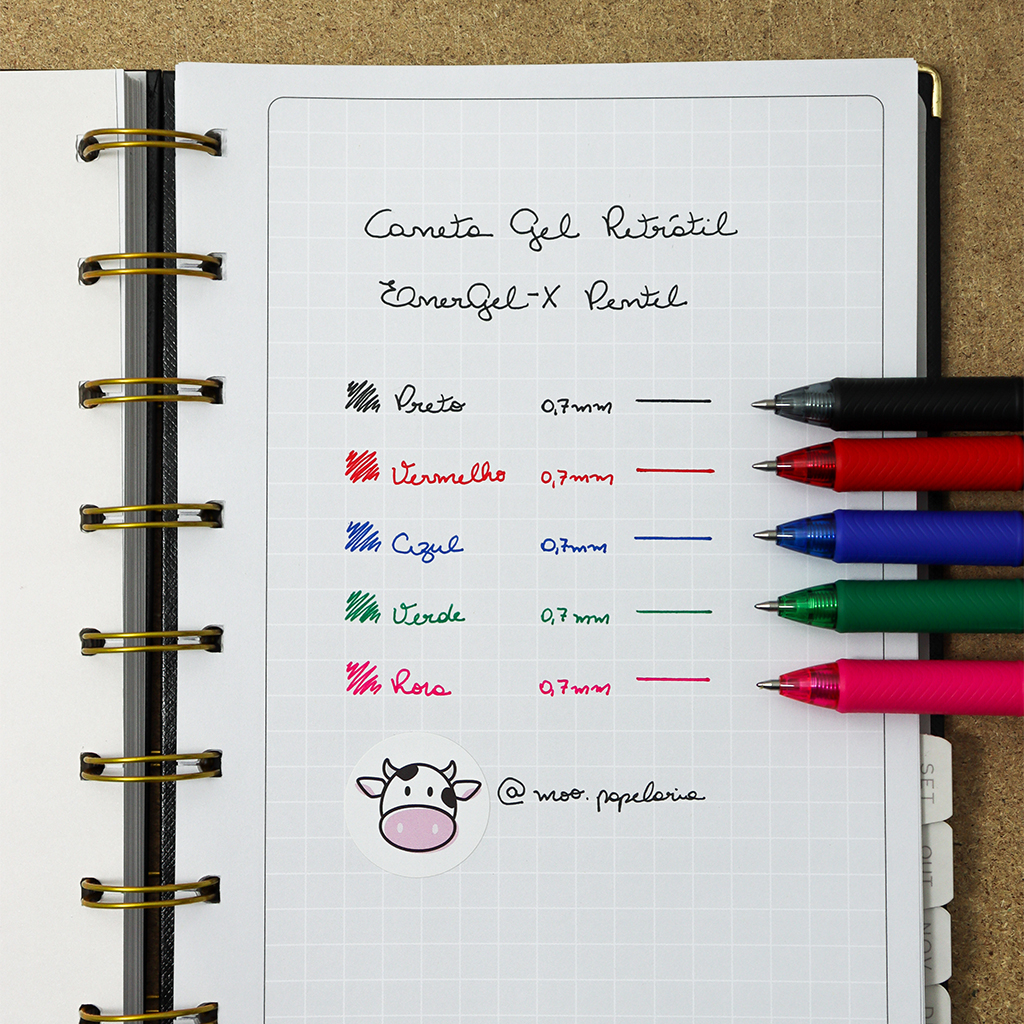 Caneta Gel Retrátil
EnerGel-X Pentel
Preto 0,7mm
Vermelho 0,7mm
Azul 0,7mm
Verde 0,7mm
Rosa 0,7mm
@moo.papelaria
SET
OUT
NOV
D